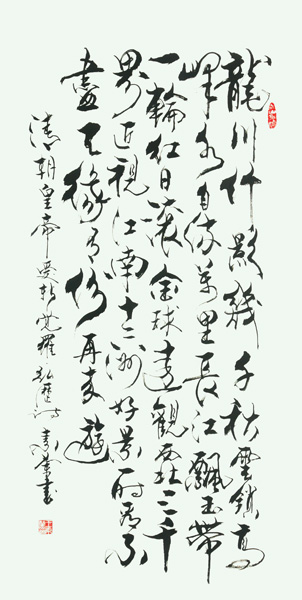 龍川竹影幾千秋雲鎖高
峰水自流萬里長江飄玉帶
一輪紅日滾金球遠觀西北三千
界近視江南十二洲好景一時看不
盡天緣有份再來遊
清朝皇帝愛新覺羅弘曆詩 書